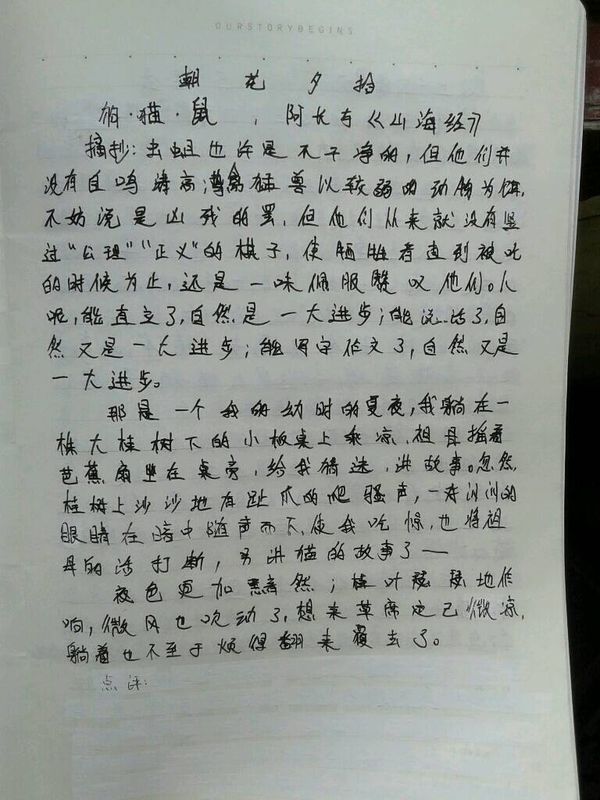 OURSTORYBEGINS
朝花夕拾
狗·猫·鼠，阿长与《山海经》
摘抄：虫蛆也许是不干净的，但他们并
没有自鸣清高；鸷禽猛兽以较弱的动物为饵，
不妨说是凶残的罢，但他们从来就没有竖
过“公理”“正义”的棋子，使牺牲者直到被吃
的时候为止，还是一味佩服赞叹他们。人
呢，能直立了，自然是一大进步；能说话了，自
然又是一大进步；能写字作文了，自然又是
一大进步。
那是一个我的幼时的夏夜，我躺在一
株大桂树下的小板桌上乘凉，祖母摇着
芭蕉扇坐在桌旁，给我猜迷，讲故事。忽然，
桂树上沙沙地有趾爪的爬骚声，一对闪闪的
眼睛在暗中随声而下，使我吃惊，也将祖
母的话打断，另讲猫的故事了——
夜色更加黯然；桂叶瑟瑟地作
响，微风也吹动了，想来草席定已微凉，
躺着也不至于烦得翻来覆去了。
点评：